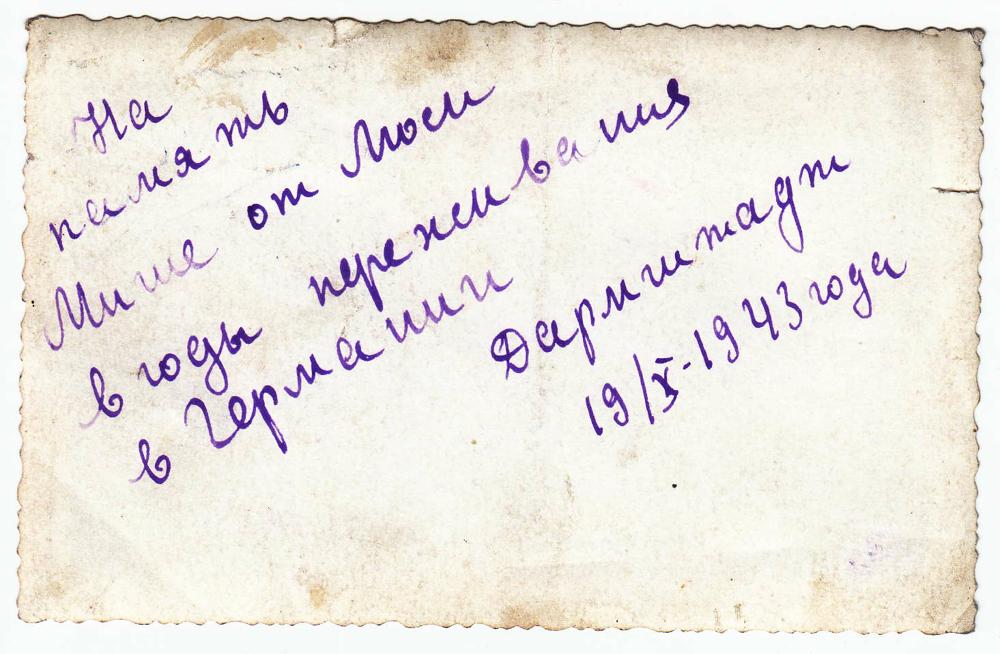 На
память
Мише от Люси
в годы переживания
в Германии
Дармштадт
19/X-1943 года